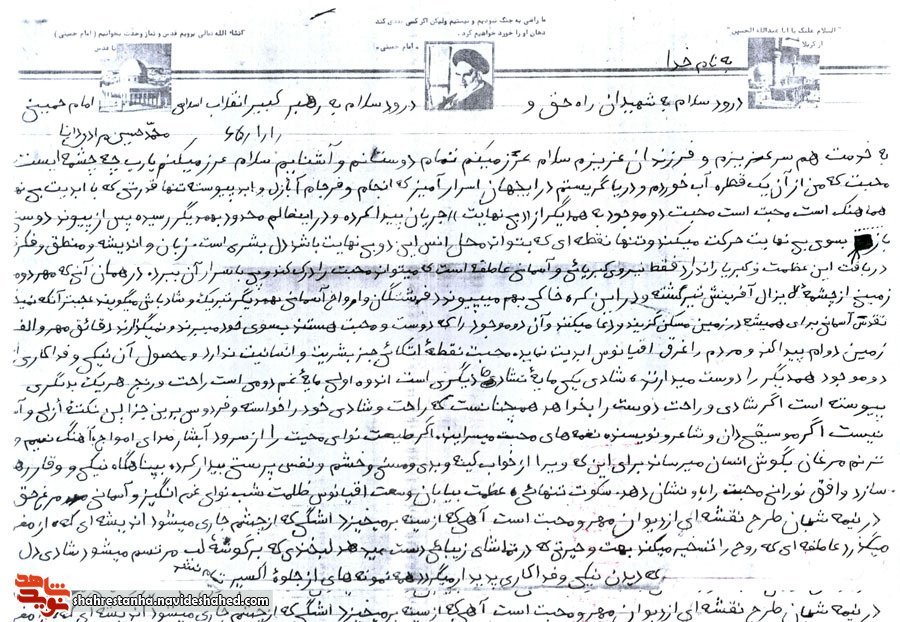 ما راهی به جنگ نبودیم و نیستیم ولیکن اگر کسی تعدی کند
دهان او را خورد خواهیم کرد.
« امام خمینی »
انشاء الله تعالی برویم قدس و نماز وحدت بخوانیم ( امام خمینی )
تا قدس
" السلام علیک یا ابا عبدالله الحسین "
از کربلا
به نام خدا
درود سلام به شهیدان راه حق و درود سلام به رهبر کبیر انقلاب اسلامی امام خمینی
محمد حسین مرادی
به خدمت هم سر عزیزم و فرزندان عزیزم سلام عرز میکنم تمام دوستانم و آشنایم سلام عرز میکنم یارب چه چشمه ایست
محبت که من از آن یک قطره آب خوردم و دریا گریستم در اینجهان اسرار آمیز که انجام و فرجام آن ازل و ابد پیوسته تنها قدرتی که با ابدیت
هماهنگ است محبت است محبت دو موجود به همدیگر از ((بی نهایت)) جریان پیدا کرده و در اینعالم محدود بهمدیگر رسیده پس از پیوند
باز بسوی بی نهایت حرکت میکند و تنها نقطه ای که بتواند محل انس این دو بی نهایت باشد دل بشری است. زبان و اندیشه و منطق و فکر
دریافت این عظمت و کبریا را ندارد فقط نیروی کبریائی و آسمانی عاطفه است که میتواند محبت را درک کند و پی با سرار آن ببرد. در همان آنی که مهر دو
زمینی از چشمه لایزال آفرینش سر گشته و در این کره خاکی بهم میپیوندد فرشتگان و ارواح آسمانی بهمدیگر تبریک و شادباش میگویند
تقدس آسمانی برای همیشه در زمین مسکن گزیند و دعا میکنند و آن دو موجود را که دوست و محبت هستند بسوی خود میبرند و نمیگذارند دقائق مهر و
زمین دوام پیدا کند و مردم را غرق اقیانوس ابدیت نماید. محبت نقطه اتکائی جز بشریت و انسانیت ندارد و محصول آن نیکی و فداکاری
دو موجود همدیگر را دوست میدارند شادی یکی مایه شادی دیگری است اندوه اولی مایه غم دومی است راحت و رنج هر یک بدیگری
پیوسته است اگر شادی و راحت دوست را بخواهد همچنانست که راحت و شادی خود را خواسته و فردوس برین جز این نکته ازلی و
نیست اگر موسیقی دان و شاعر و نویسنده نغمه های محبت میسرایند. اگر طبیعت نوای محبت را از سرود آبشار صدای امواج آهنگ نسیم و
ترنم مرغان بگوش انسان میرساند برای این که ویرا از خواب کینه و بدی و مستی و خشم و نفس پرستی بیدار کرده بپناهگاه نیکی و وقار
سازد و افق نورانی محبت را باو نشان دهد. سکوت تنهائی عظمت بیابان وسعت اقیانوس ظلمت شب نوای غم انگیز و آسمانی مرغ حق
در نیمه شبان طرح نقشه ای از دیوان مهر و محبت است آهی که از سینه بر میخیزد اشگی که از چشم جاری میشود اندیشه ای که از
میگذرد عاطفه ای که روح را تسخیر میکند بهت و حیرتی که در تماشای زیبائی دست میدهد لبخندی که بر گوشه لب مرتسم میشود شادی دل
که دیدن نیکی و فداکاری پدیدار میگردد همه نمونه های از جلوه اکسیر
نوید شاهد
shahrestanha.navideshahed.com
در نیمه شبان طرح نقشه ای از دیوان مهر و محبت است آهی که از سینه بر میخیزد اشگی که از چشم جاری میشود اندیشه ای که